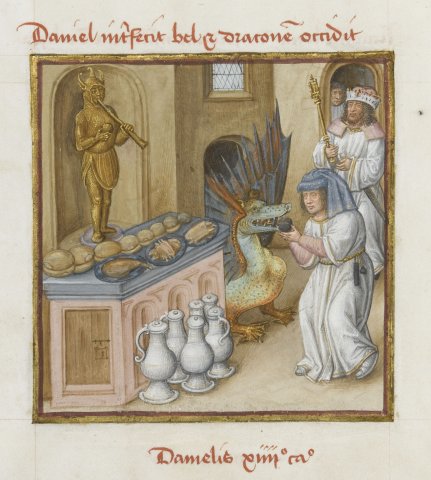 Daniel int̃fecit bel ⁊ draconē occidit
Danielis xiiij° ca°